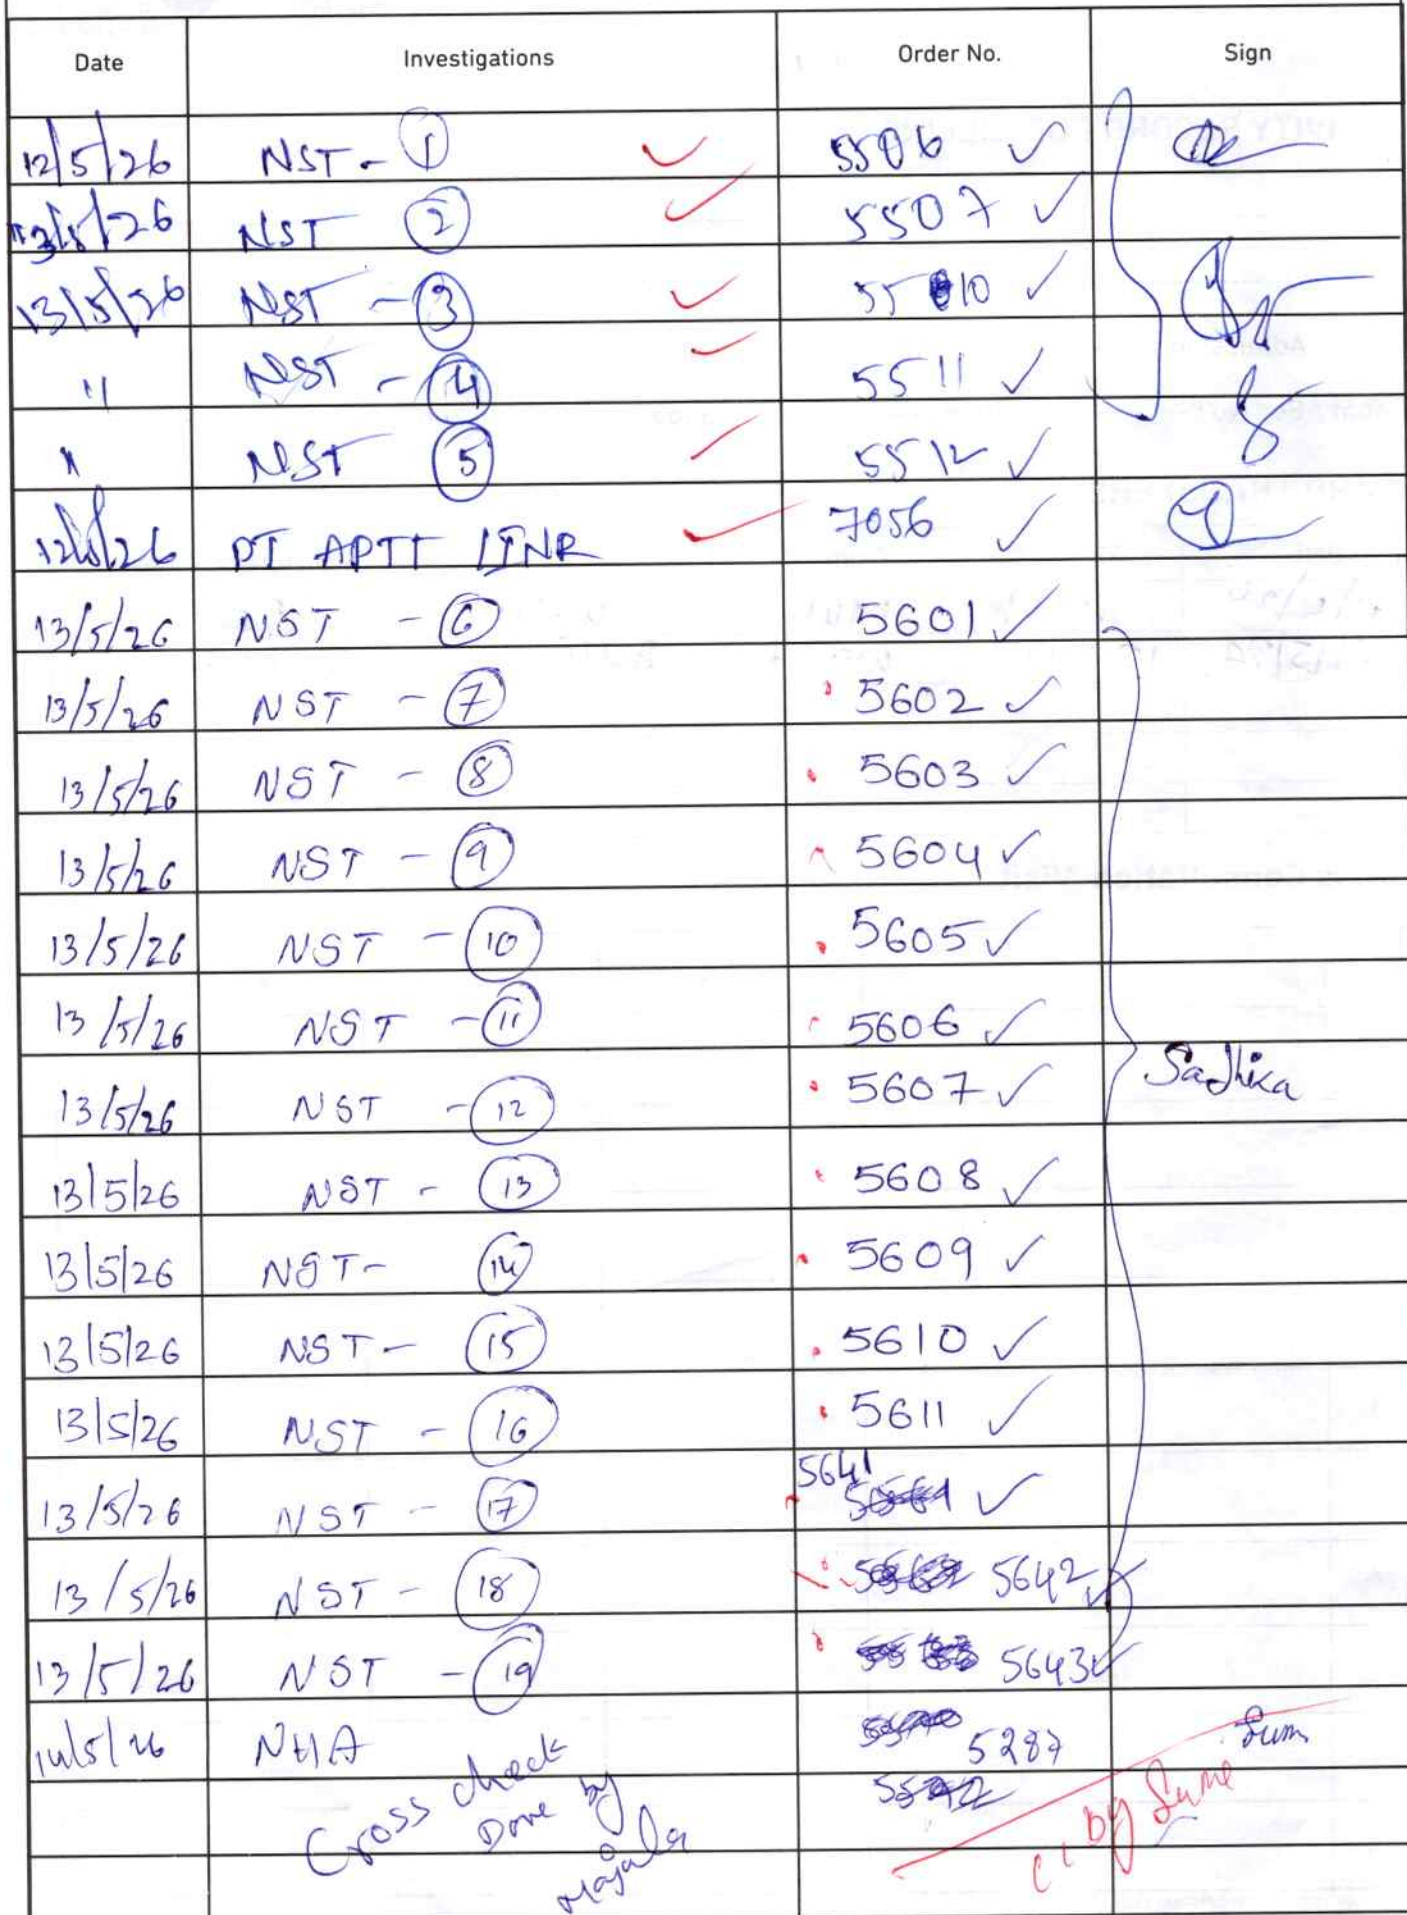 Date Investigations Order No. Sign
12/5/26 NST - 1 ✓ 5506 ✓
13/5/26 NST 2 ✓ 5507 ✓
13/5/26 NST - 3 ✓ 5510 ✓
" NST - 4 ✓ 5511 ✓
" NST 5 ✓ 5512 ✓
12/5/26 PT APTT INR ✓ 7056 ✓
13/5/26 NST - 6 5601 ✓
13/5/26 NST - 7 5602 ✓
13/5/26 NST - 8 5603 ✓
13/5/26 NST - 9 5604 ✓
13/5/26 NST - 10 5605 ✓
13/5/26 NST - 11 5606 ✓
13/5/26 NST - 12 5607 ✓ Sadhika
13/5/26 NST - 13 5608 ✓
13/5/26 NST - 14 5609 ✓
13/5/26 NST - 15 5610 ✓
13/5/26 NST - 16 5611 ✓
13/5/26 NST - 17 5641 ✓
13/5/26 NST - 18 5642 ✓
13/5/26 NST - 19 5643 ✓
14/5/26 NHA 5287
Cross check
Done by
by